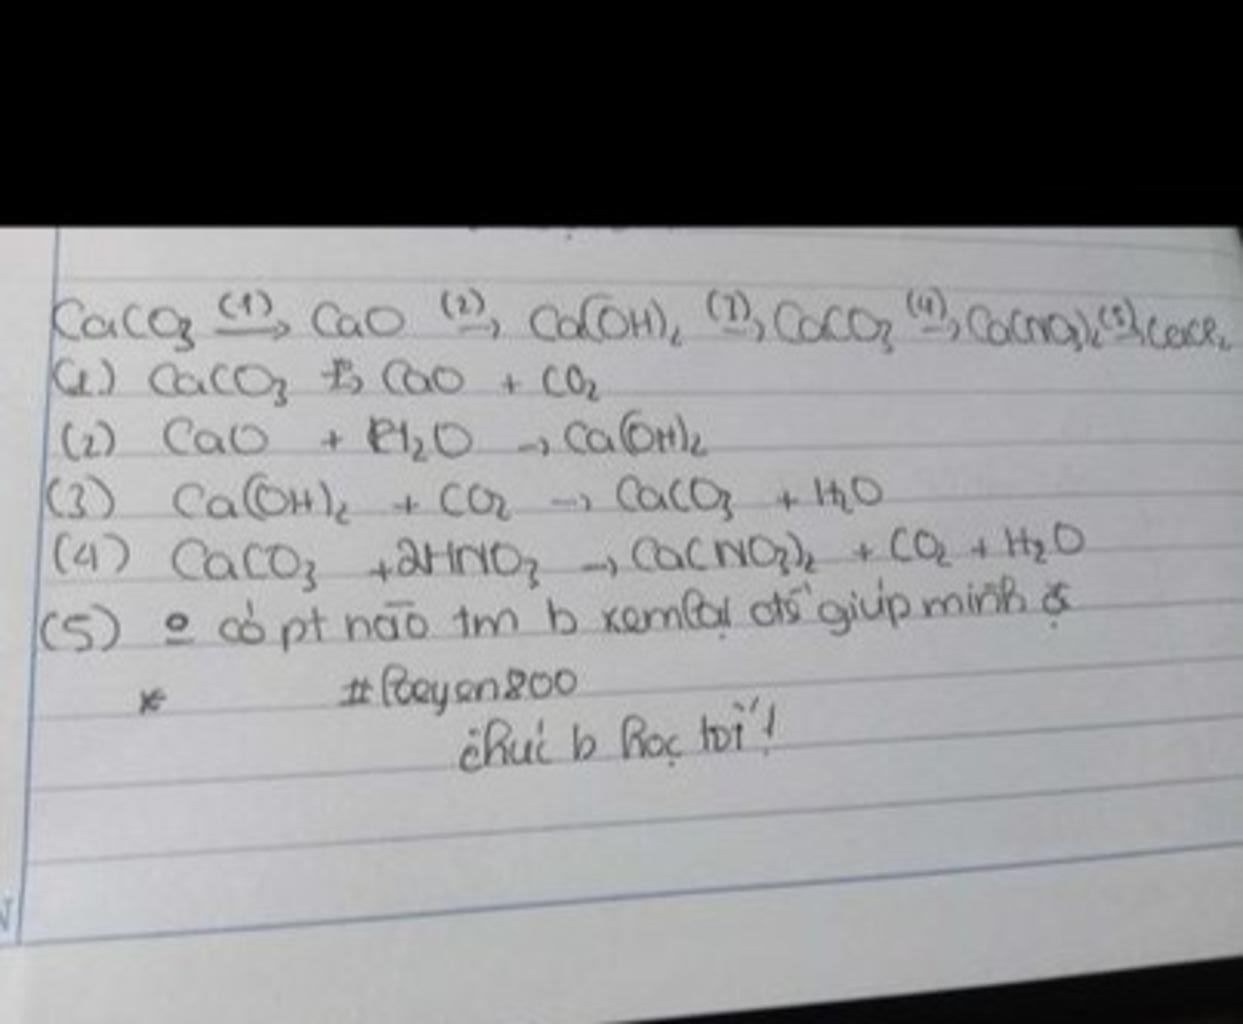 CaCO3 (1)→ CaO (2)→ Ca(OH)2 (3)→ CaCO3 (4)→ Ca(NO3)2 (5)→ CaCl2
(1) CaCO3 t°→ CaO + CO2
(2) CaO + H2O → Ca(OH)2
(3) Ca(OH)2 + CO2 → CaCO3 + H2O
(4) CaCO3 + 2HNO3 → Ca(NO3)2 + CO2 + H2O
(5) có pt nào tm b xem lại đề giúp mình
chúc b học tốt!